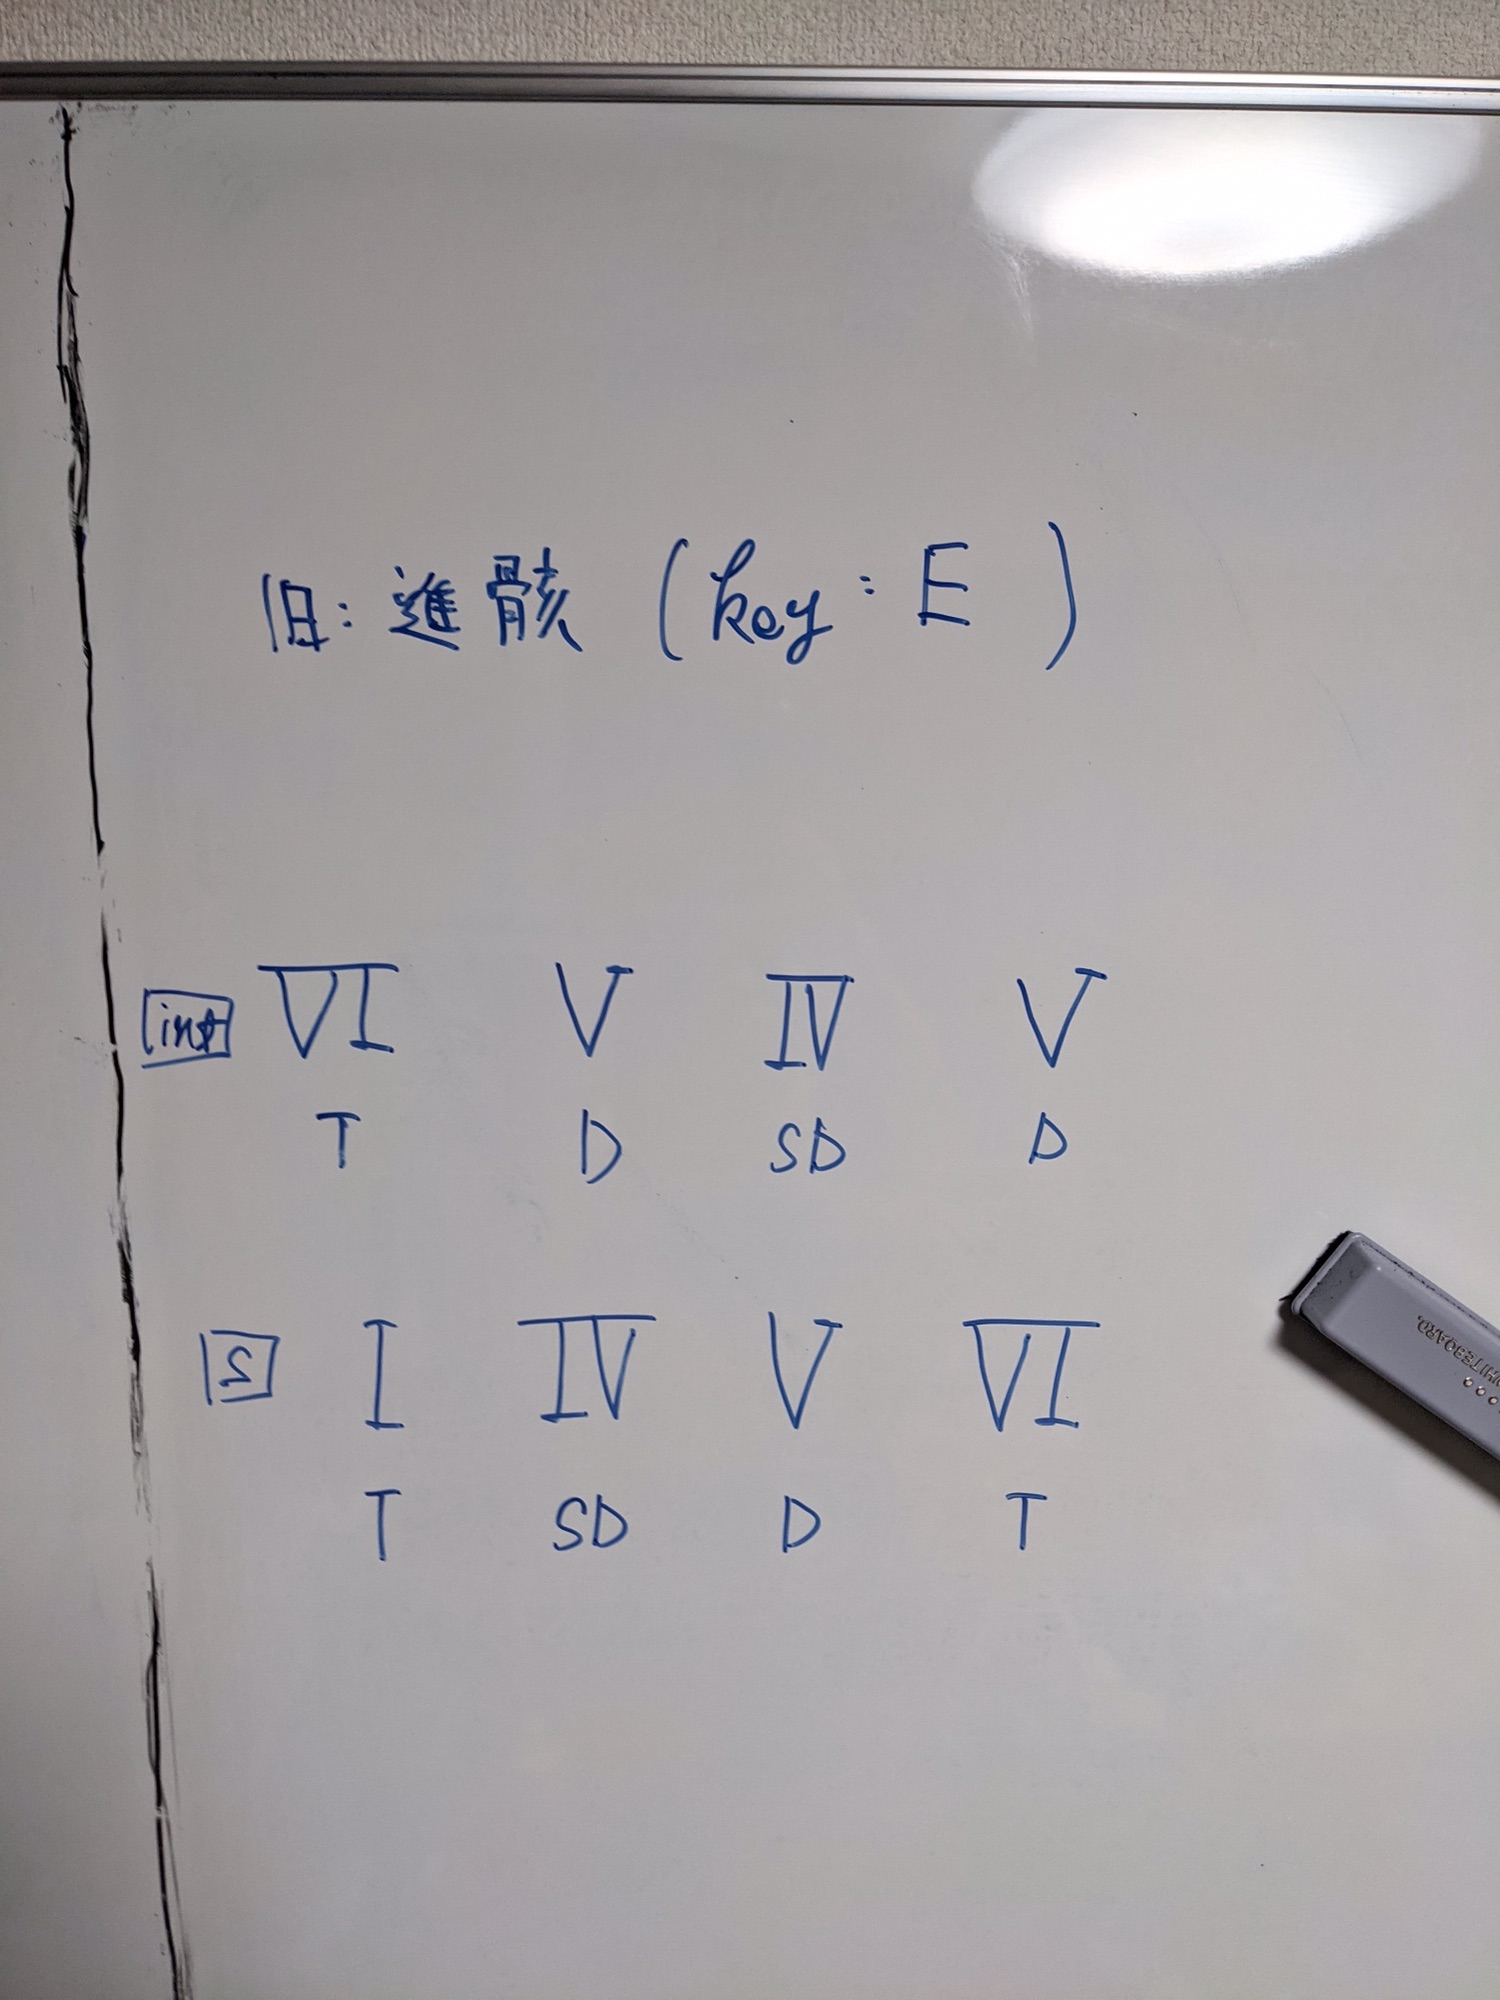 旧:進骸 (key:E)
inst VI V IV V
T D SD D
S I IV V VI
T SD D T
WHITEBOARD.